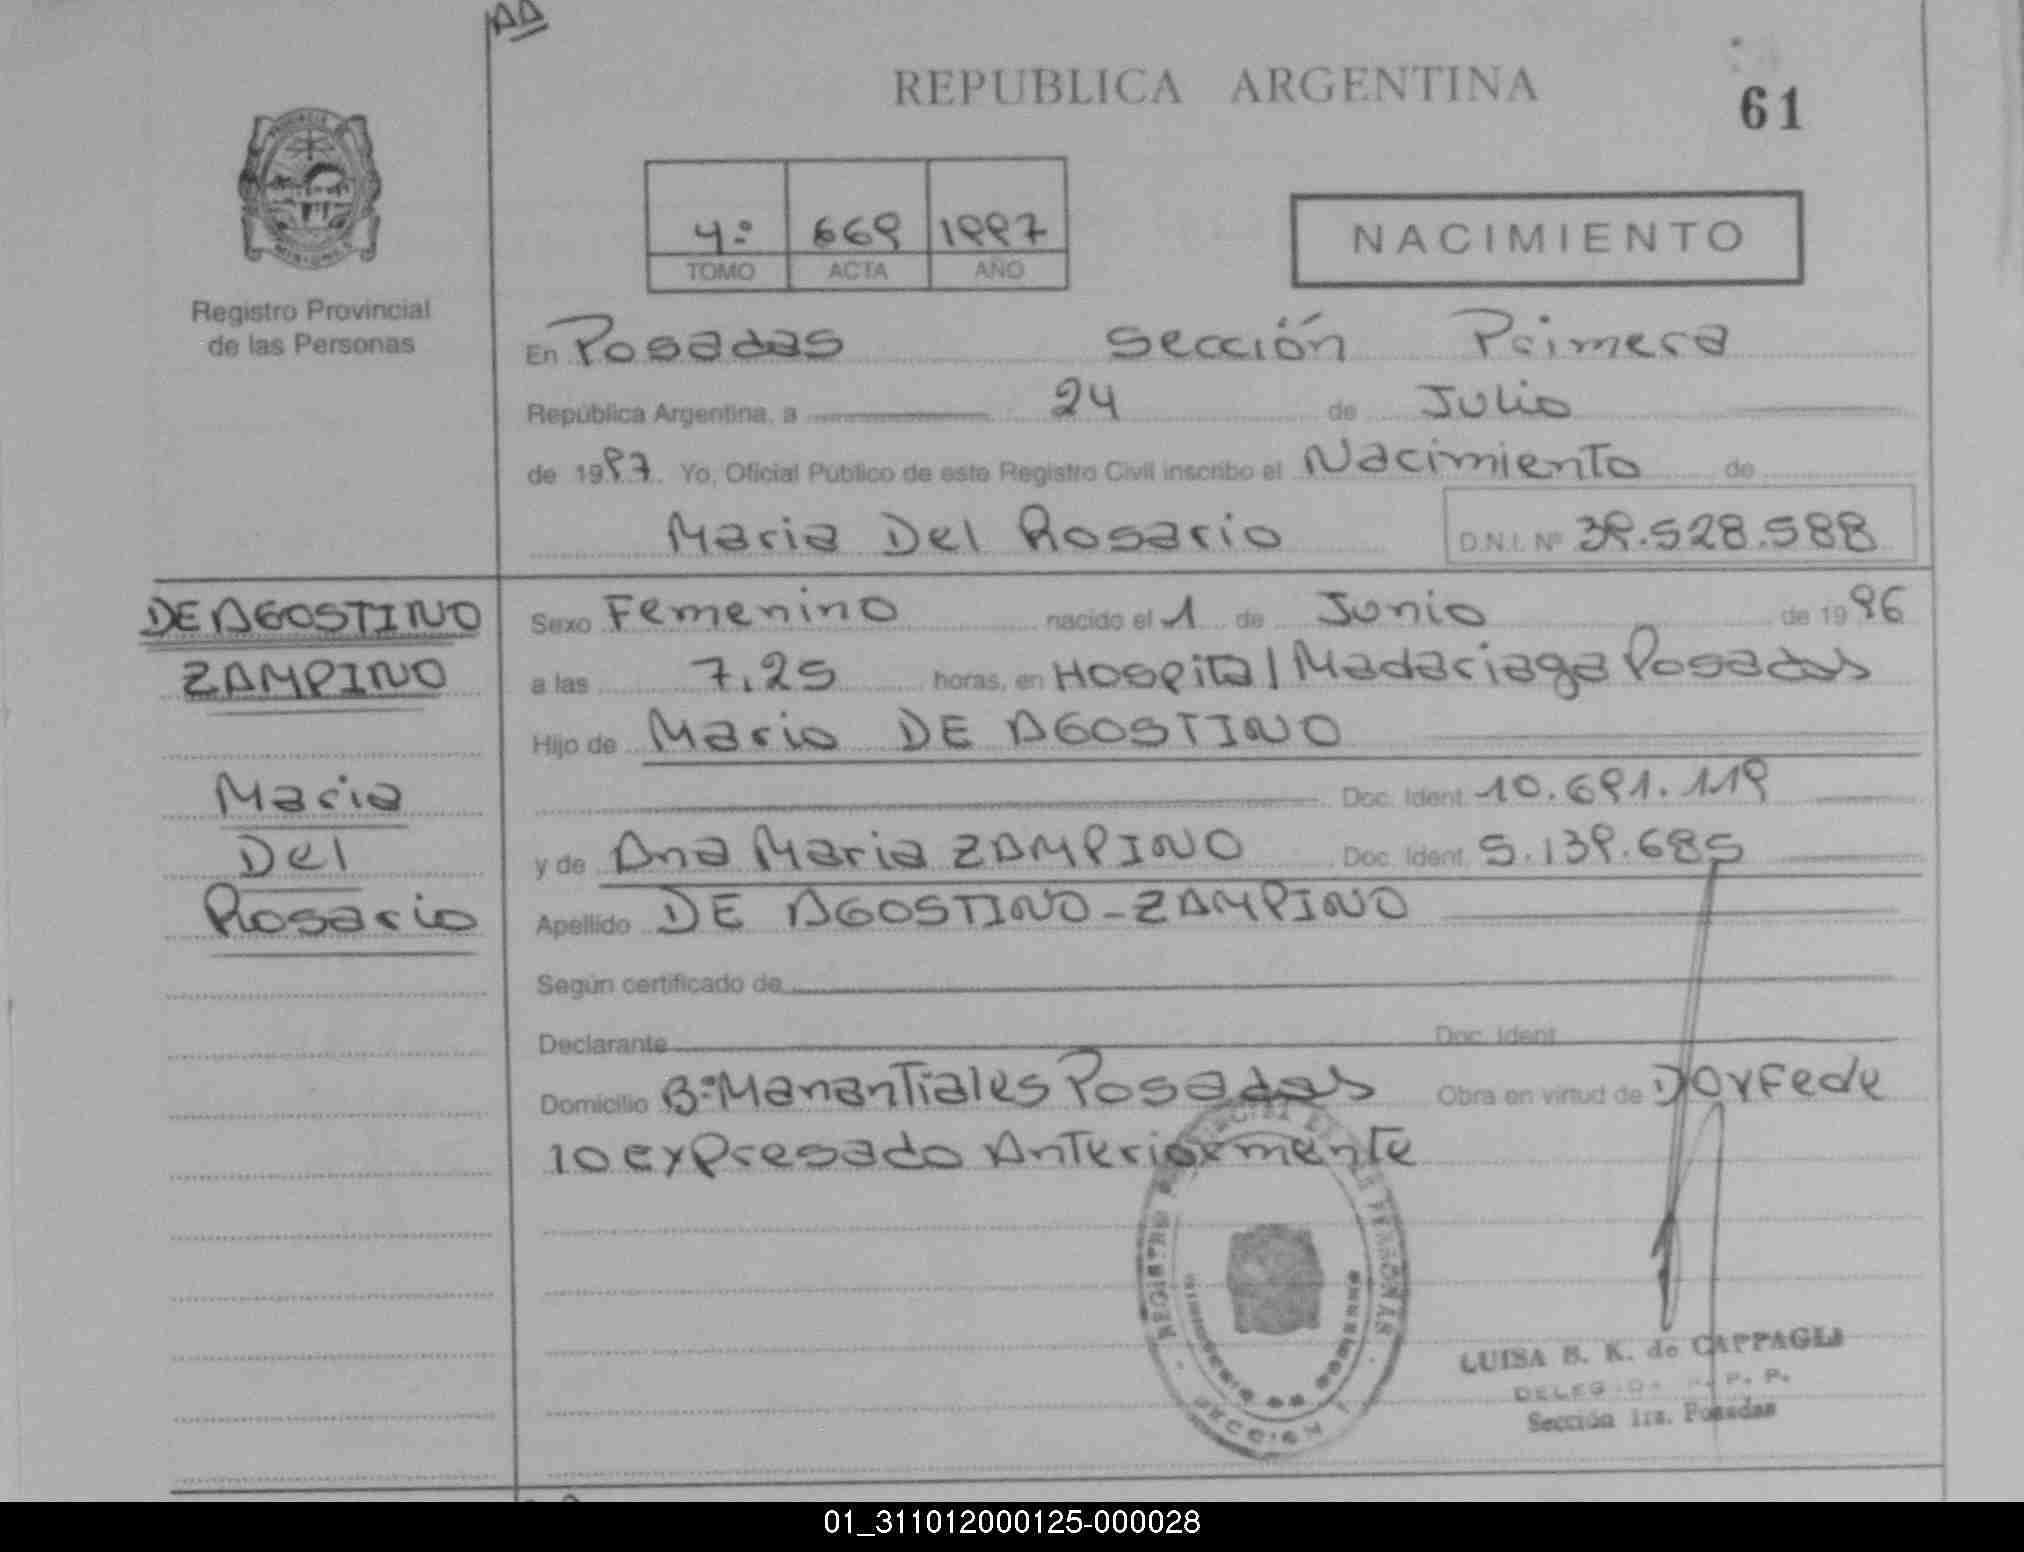 AA
REPUBLICA ARGENTINA
61
4º 669 1997
TOMO ACTA AÑO
NACIMIENTO
Registro Provincial
de las Personas
En Posadas Sección Primera
República Argentina, a 24 de Julio
de 1997. Yo, Oficial Público de este Registro Civil inscribo el Nacimiento de
Maria Del Rosario D.N.I. Nº 39.528.588
DE AGOSTINO
ZAMPINO
Maria
Del
Rosario
Sexo Femenino nacido el 1 de Junio de 1996
a las 7.25 horas, en Hospital Madariaga Posadas
Hijo de Mario DE AGOSTINO
Doc. Ident. 10.691.119
y de Ana Maria ZAMPINO Doc. Ident. 5.139.685
Apellido DE AGOSTINO-ZAMPINO
Según certificado de
Declarante Doc. Ident
Domicilio Bº Manantiales Posadas Obra en virtud de DOY Fe de
lo expresado Anteriormente
LUISA B. K. de CAPPAGLI
P. P.
Sección 1ra. Posadas
SECCION 1
01_311012000125-000028